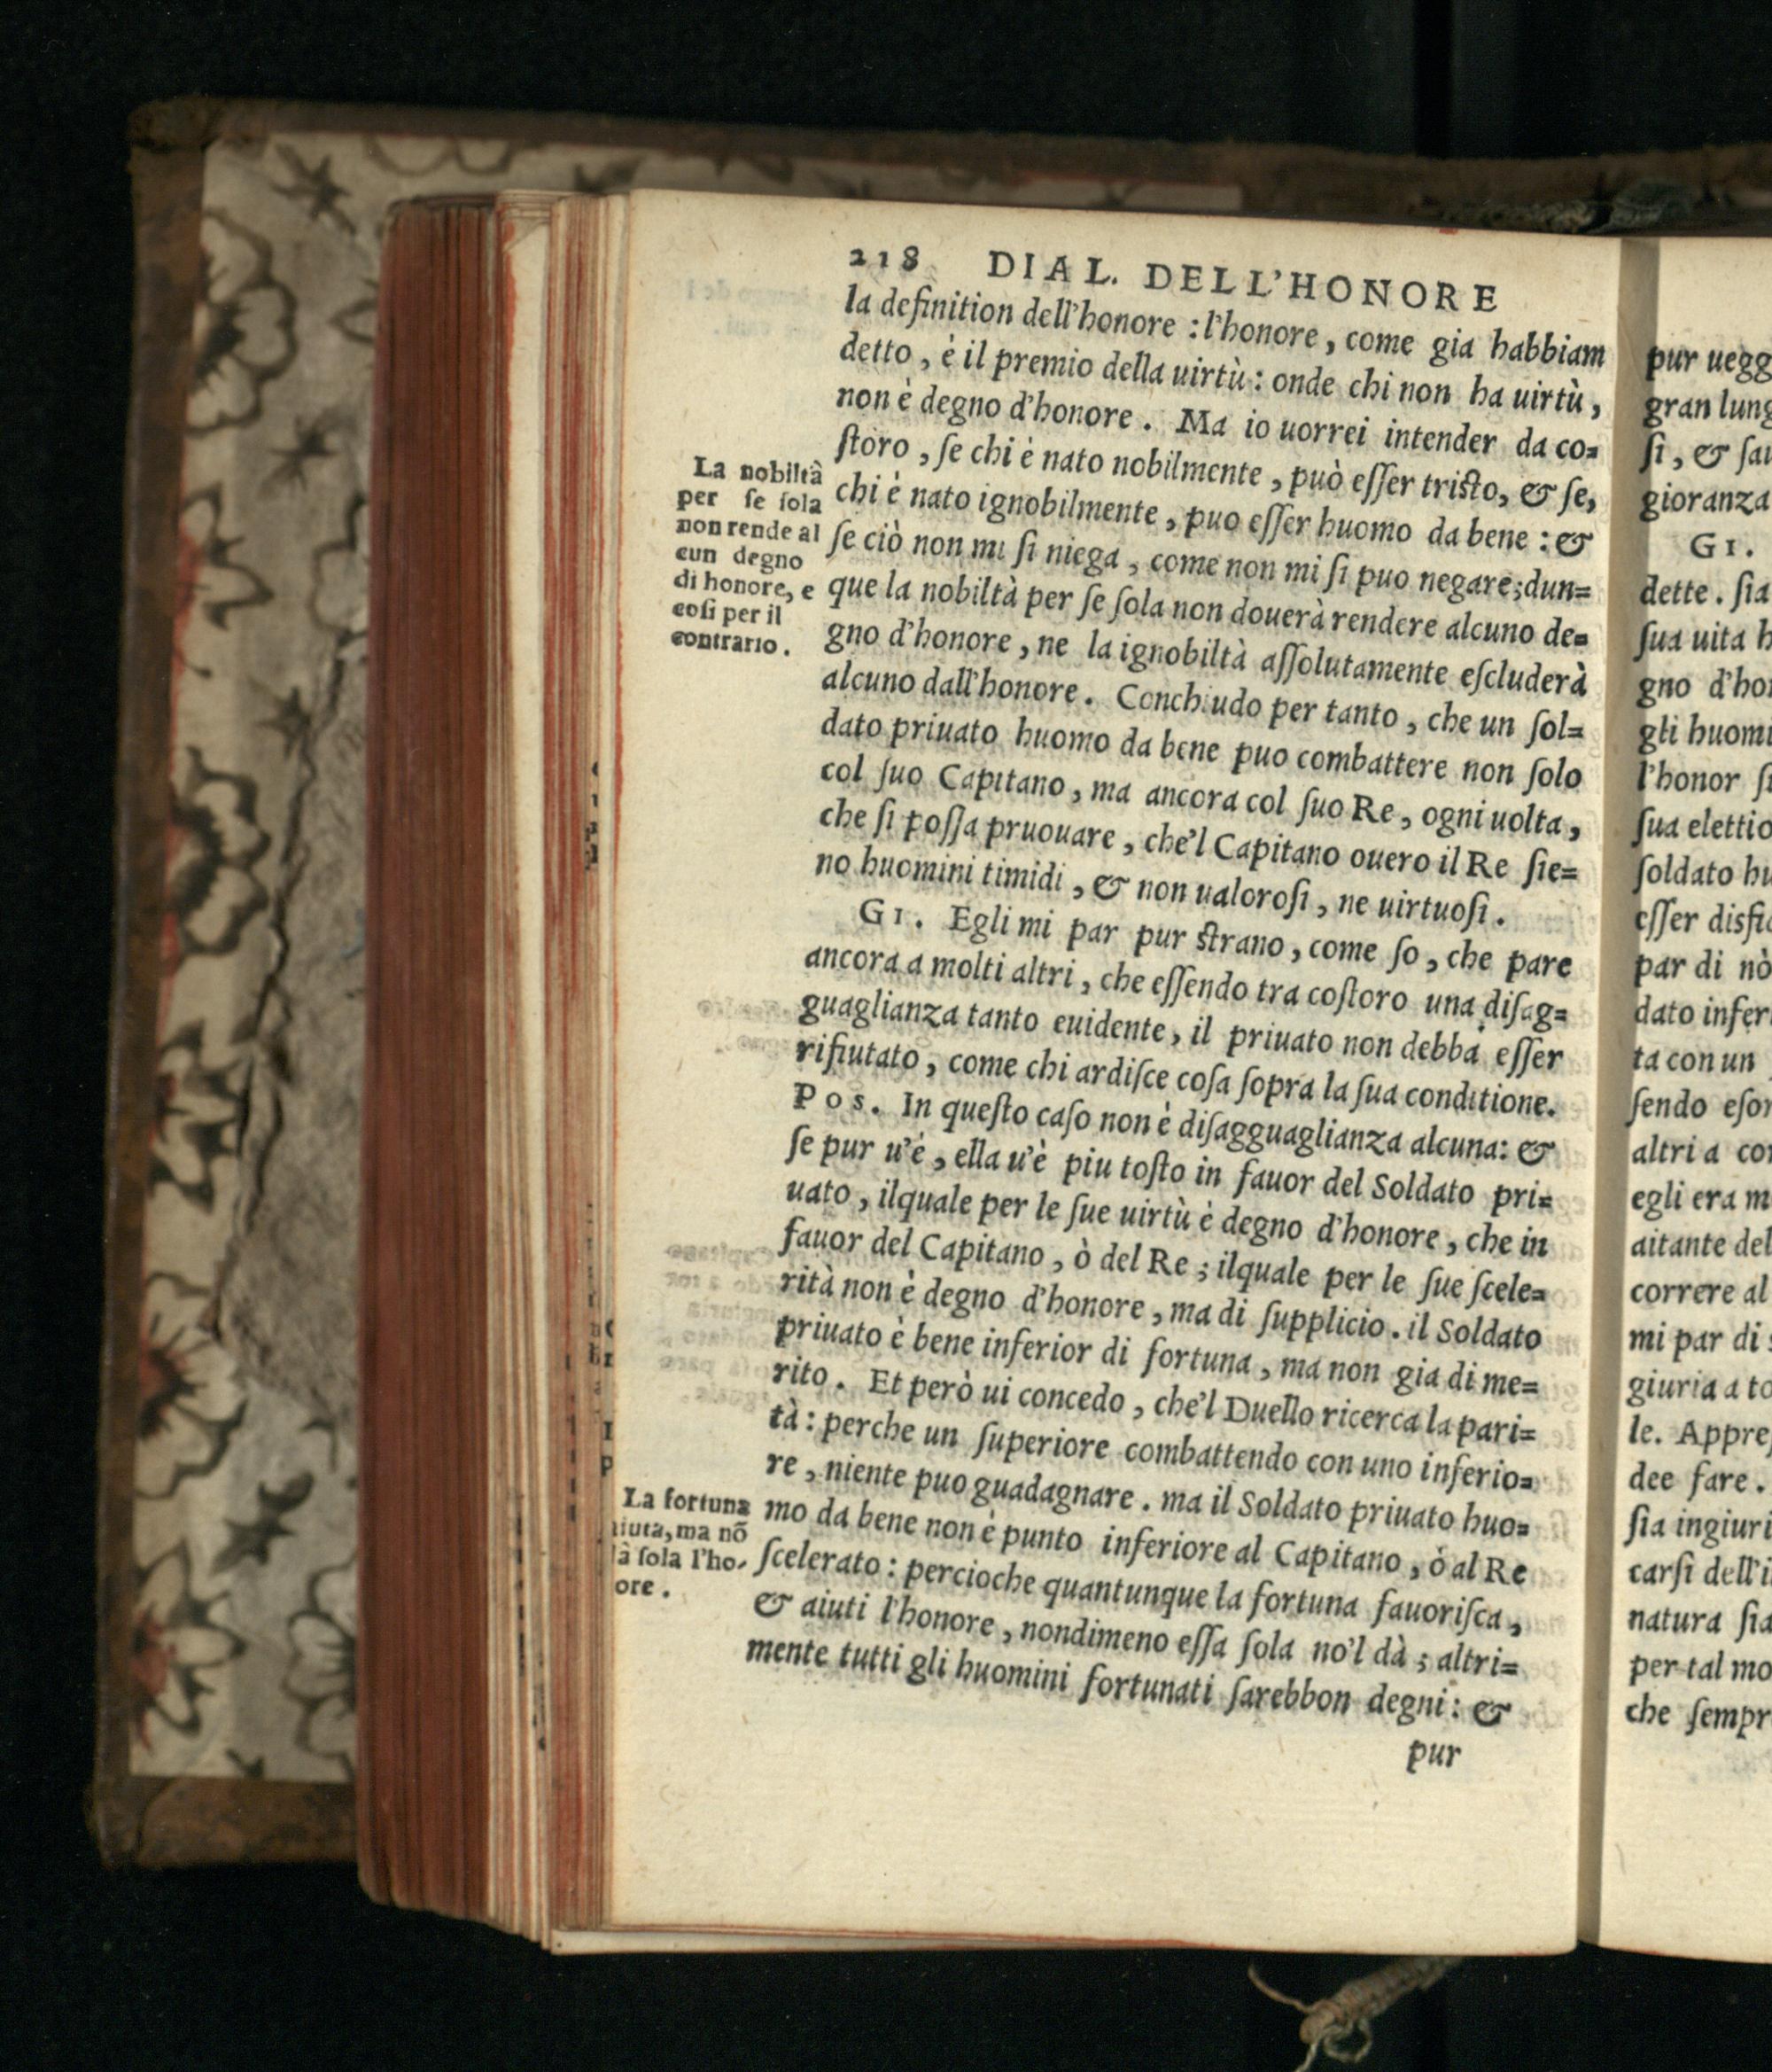 218 DIAL. DELL'HONORE
la definition dell'honore : l'honore, come gia habbiam
detto, è il premio della uirtù: onde chi non ha uirtù,
non è degno d'honore. Ma io uorrei intender da co=
ſtoro, ſe chi è nato nobilmente, può eſſer triſto, & ſe,
chi è nato ignobilmente, puo eſſer huomo da bene : &
ſe ciò non mi ſi niega, come non mi ſi puo negare; dun=
que la nobiltà per ſe ſola non douerà rendere alcuno de=
gno d'honore, ne la ignobiltà aſſolutamente eſcluderà
alcuno dall'honore. Conchiudo per tanto, che un ſol=
dato priuato huomo da bene puo combattere non ſolo
col ſuo Capitano, ma ancora col ſuo Re, ogni uolta,
che ſi poſſa pruouare, che'l Capitano ouero il Re ſie=
no huomini timidi, & non ualoroſi, ne uirtuoſi.
GI. Egli mi par pur ſtrano, come ſo, che pare
ancora a molti altri, che eſſendo tra coſtoro una diſag=
guaglianza tanto euidente, il priuato non debba eſſer
rifiutato, come chi ardiſce coſa ſopra la ſua conditione.
Pos. In queſto caſo non è diſagguaglianza alcuna: &
ſe pur u'è, ella u'è piu toſto in fauor del Soldato pri=
uato, ilquale per le ſue uirtù è degno d'honore, che in
fauor del Capitano, ò del Re; ilquale per le ſue ſcele=
rità non è degno d'honore, ma di ſupplicio. il Soldato
priuato è bene inferior di fortuna, ma non gia di me=
rito. Et però ui concedo, che'l Duello ricerca la pari=
tà: perche un ſuperiore combattendo con uno inferio=
re, niente puo guadagnare. ma il Soldato priuato huo=
mo da bene non è punto inferiore al Capitano, ò al Re
ſcelerato: percioche quantunque la fortuna fauoriſca,
& aiuti l'honore, nondimeno eſſa ſola no'l dà; altri=
mente tutti gli huomini fortunati ſarebbon degni: &
pur
La nobiltà
per ſe ſola
non rende al
cun degno
di honore, e
coſi per il
contrario.
La fortuna
iuta, ma nō
dà ſola l'ho-
ore.
pur uegg
gran lung
ſi, & ſau
gioranza
GI.
dette. ſia
ſua uita h
gno d'hon
gli huomi
l'honor ſi
ſua elettio
ſoldato hu
eſſer disfid
par di nò
dato infer
ta con un
ſendo eſor
altri a co
egli era m
aitante del
correre al
mi par di
giuria a to
le. Appreſ
dee fare.
ſia ingiuri
carſi dell'i
natura ſia
per tal mo
che ſempr